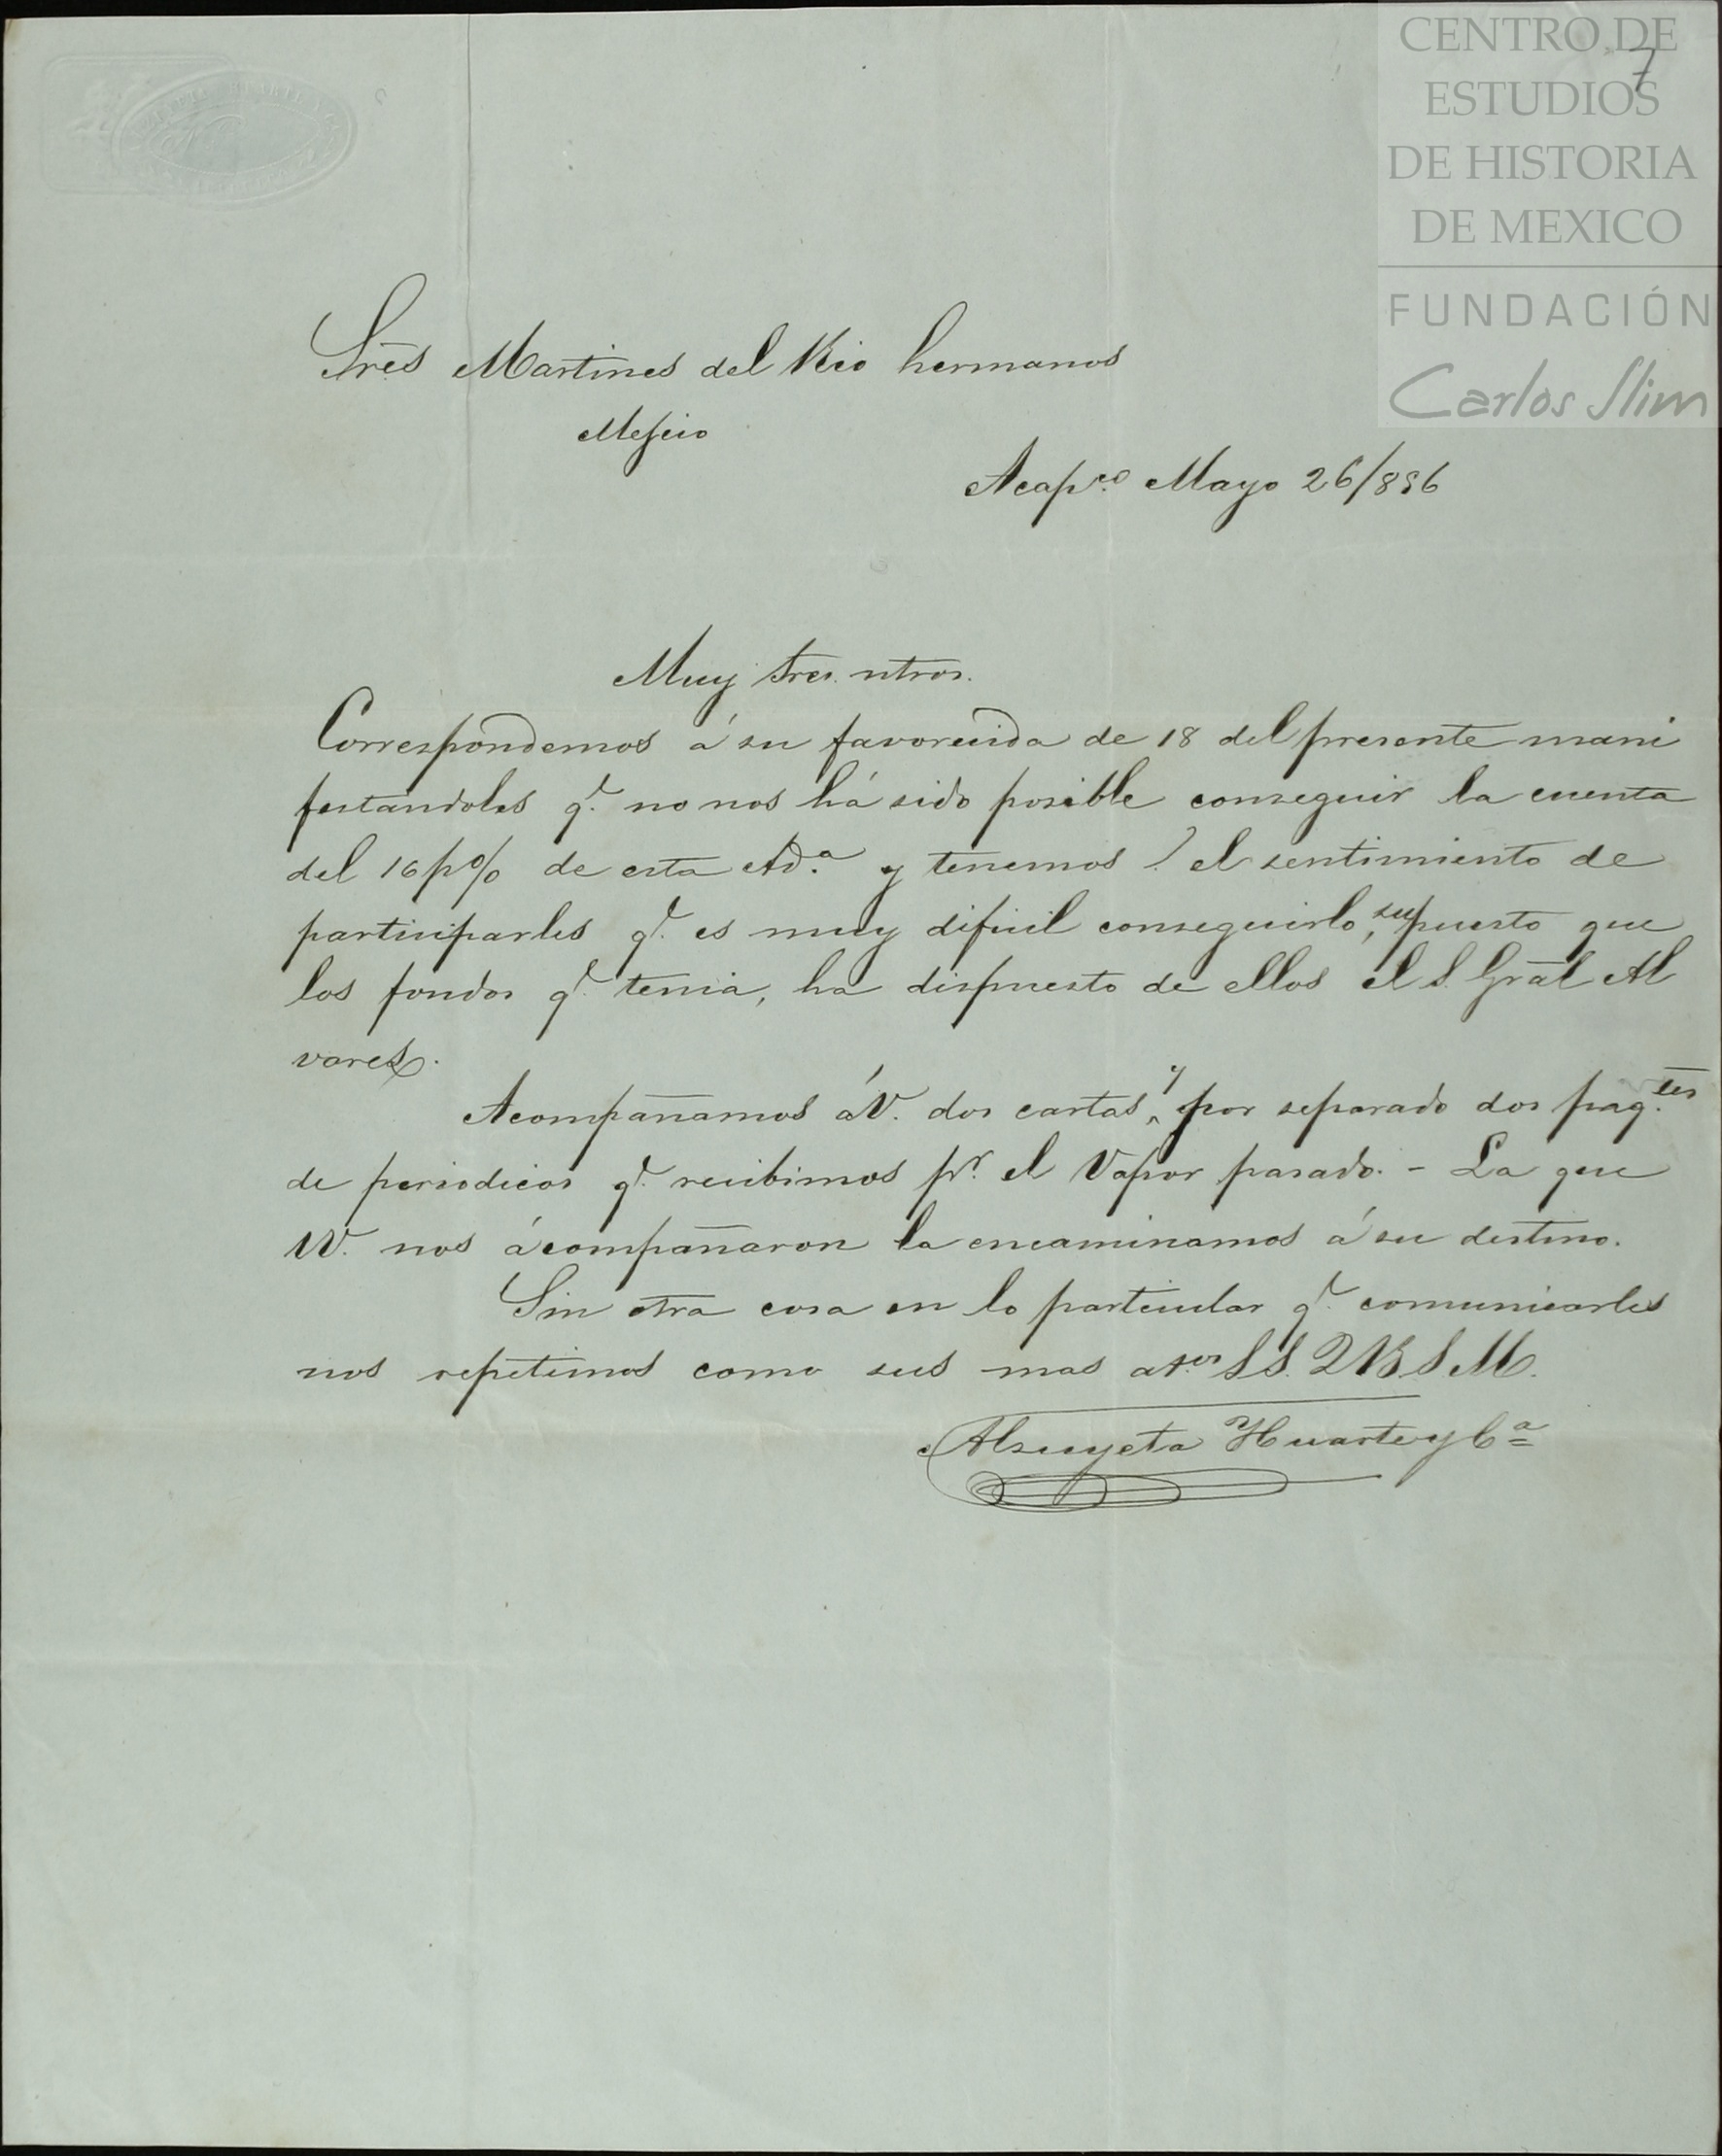 CENTRO DE
ESTUDIOS
DE HISTORIA
DE MEXICO
FUNDACIÓN
Carlos Slim
7
Sres Martines del Rio hermanos
Mejico
Acapco Mayo 26/856
Muy Sres. ntros.
Correspondemos á su favorecida de 18 del presente mani
festandoles q.e no nos há sido posible conseguir la cuenta
del 16 p% de esta Ad.a y tenemos el sentimiento de
participarles q.e es muy dificil conseguirlo, supuesto que
los fondos q.e tenia, ha dispuesto de ellos el S. Gral Al
varez.
Acompañamos á V. dos cartas, y por separado dos paq.tes
de periodicos q.e recibimos pr. el Vapor pasado. - La que
VV. nos ácompañaron la encaminamos á su destino.
Sin otra cosa en lo particular q.e comunicarles
nos repetimos como sus mas at.os S.S. Q B. S. M.
Alzuyeta Huarte y Ca